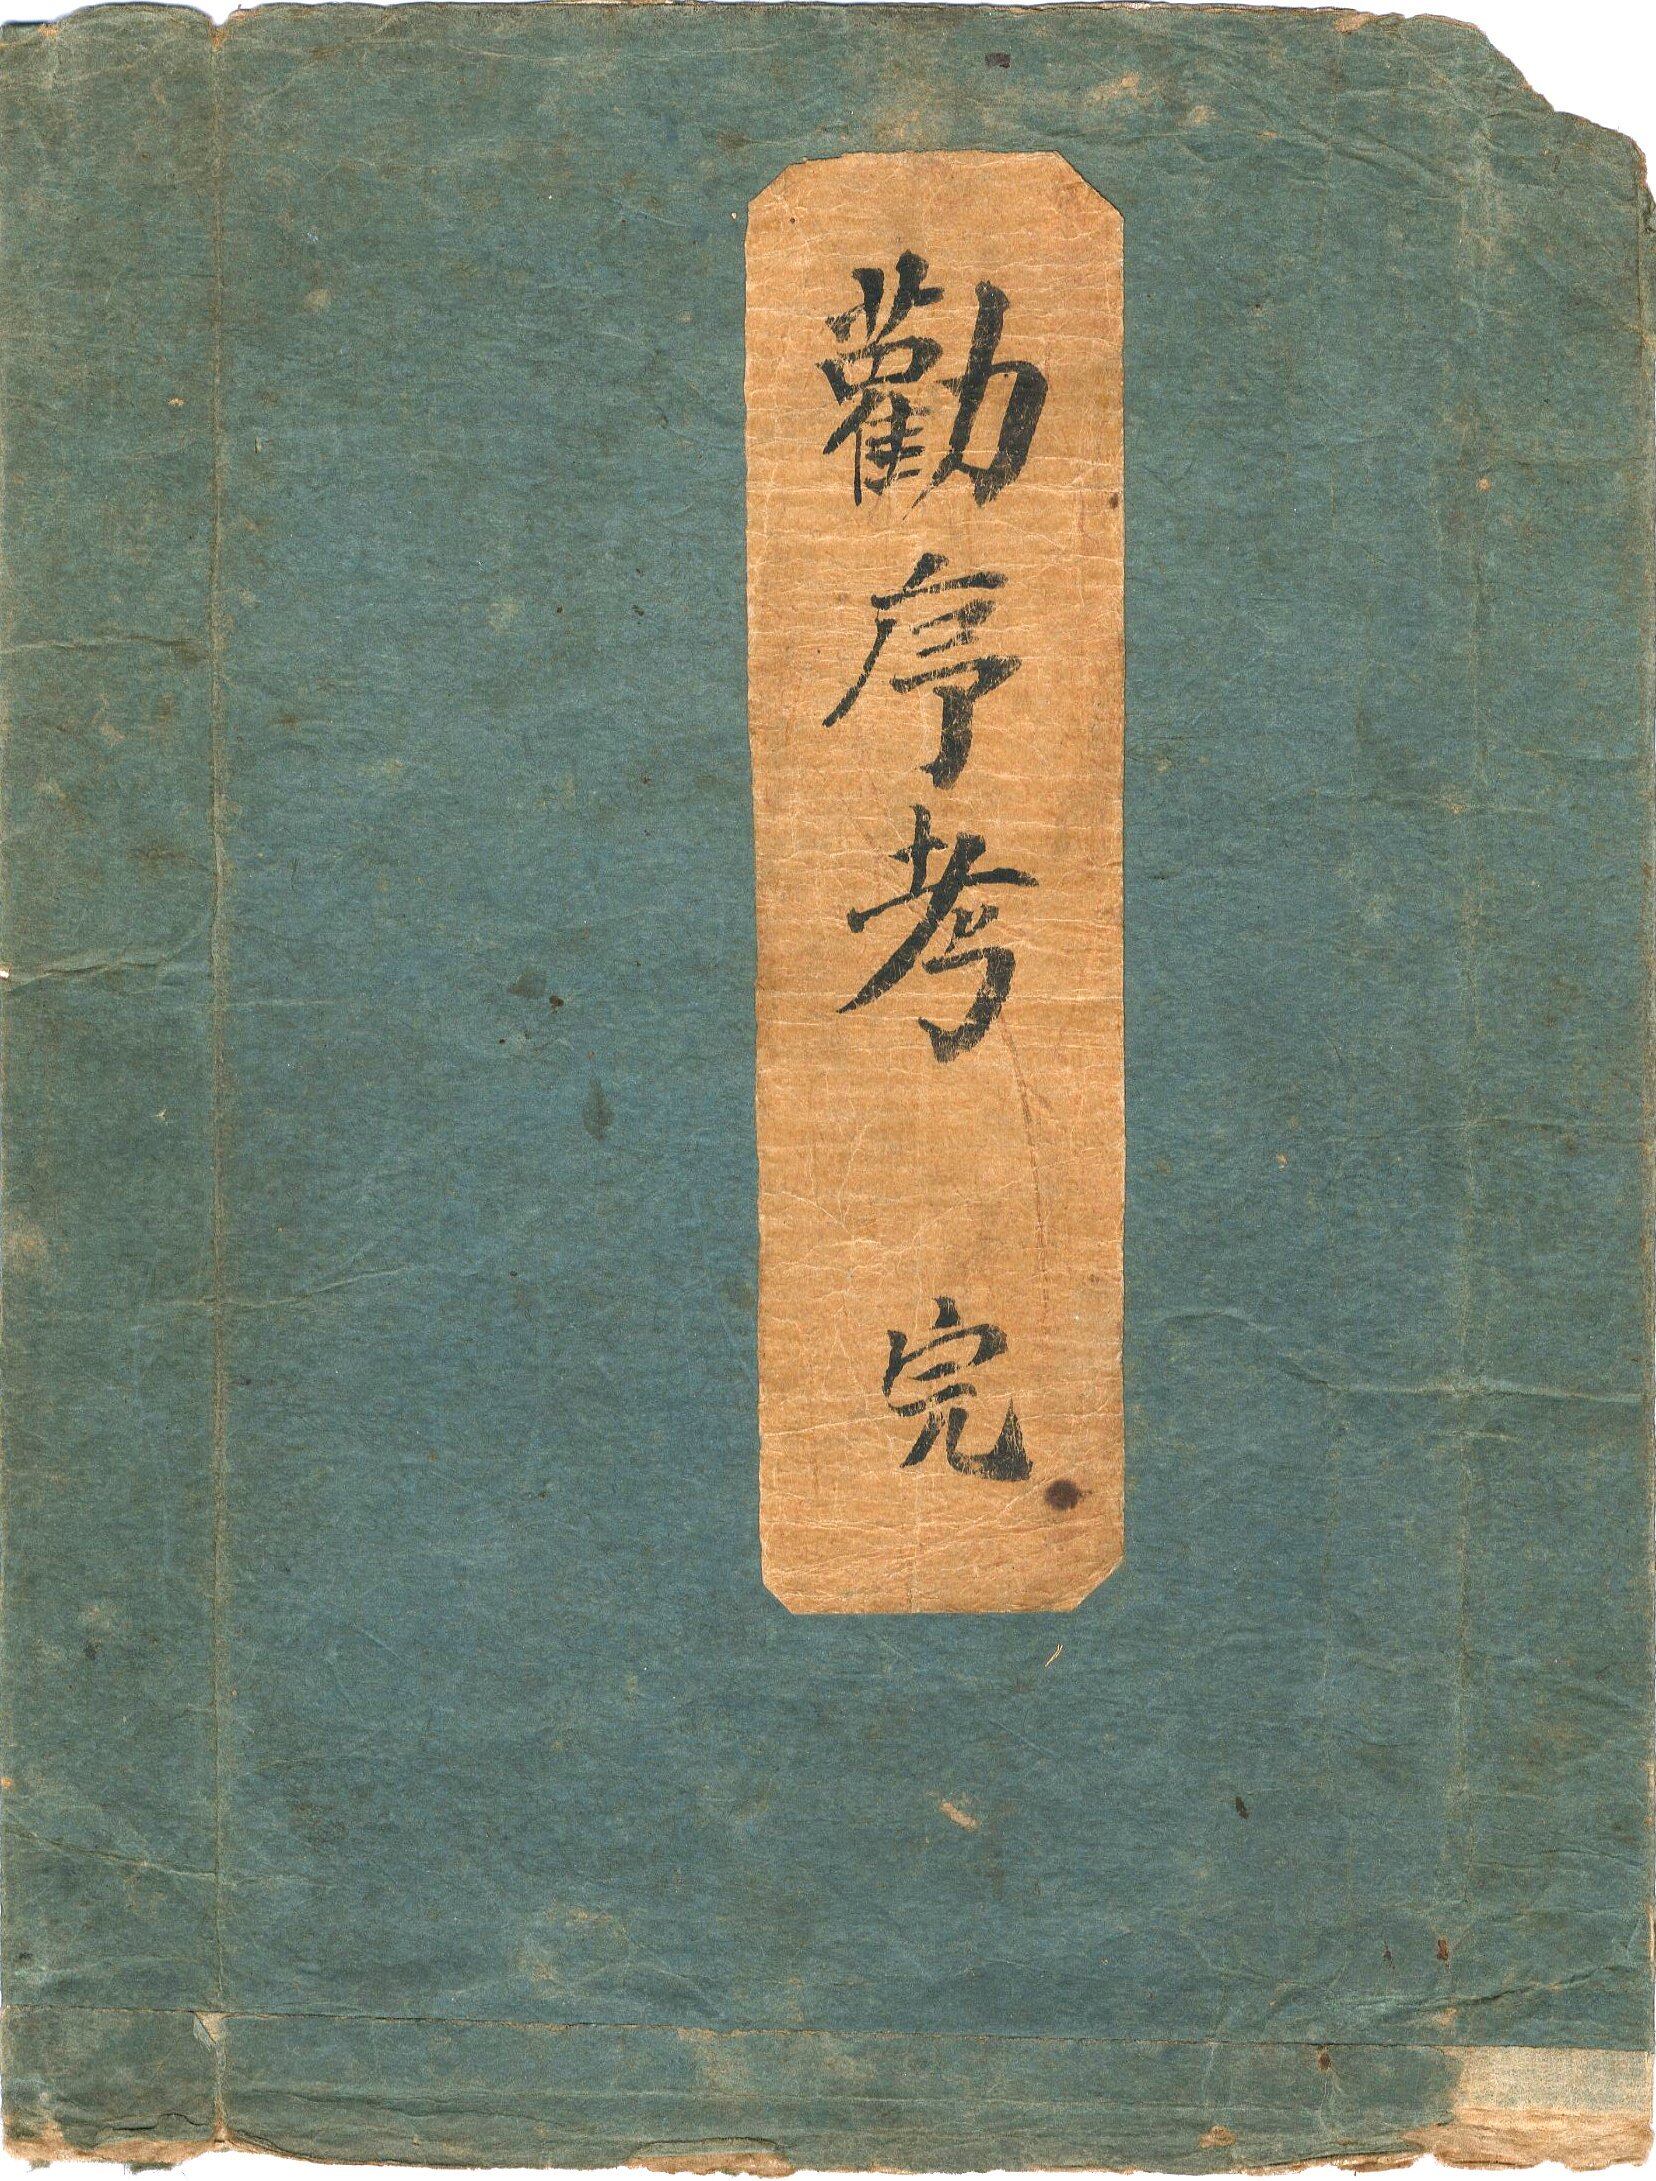 勸序考 完